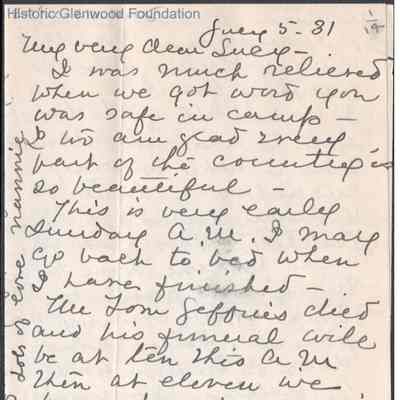 Historic Glenwood Foundation
July 5-31
My very dear Suey-
I was much relieved
when we got word you
was safe in camp-
I too am glad every
part of the country is
so beautiful-
This is very early
Sunday A.M. I may
go back to bed when
I have finished-
Mr Tom Jeffries died
and his funeral will
be at ten this A M
Then at eleven we
Lots of love Nannie